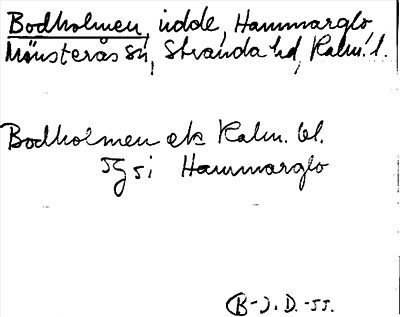 Bodholmen, udde, Hammarglo,
Mönsterås sn, Stranda hd, Kalm. l.
Bodholmen ek Kalm. bl.
5g 5i Hammarglo
B-J. D. -55.